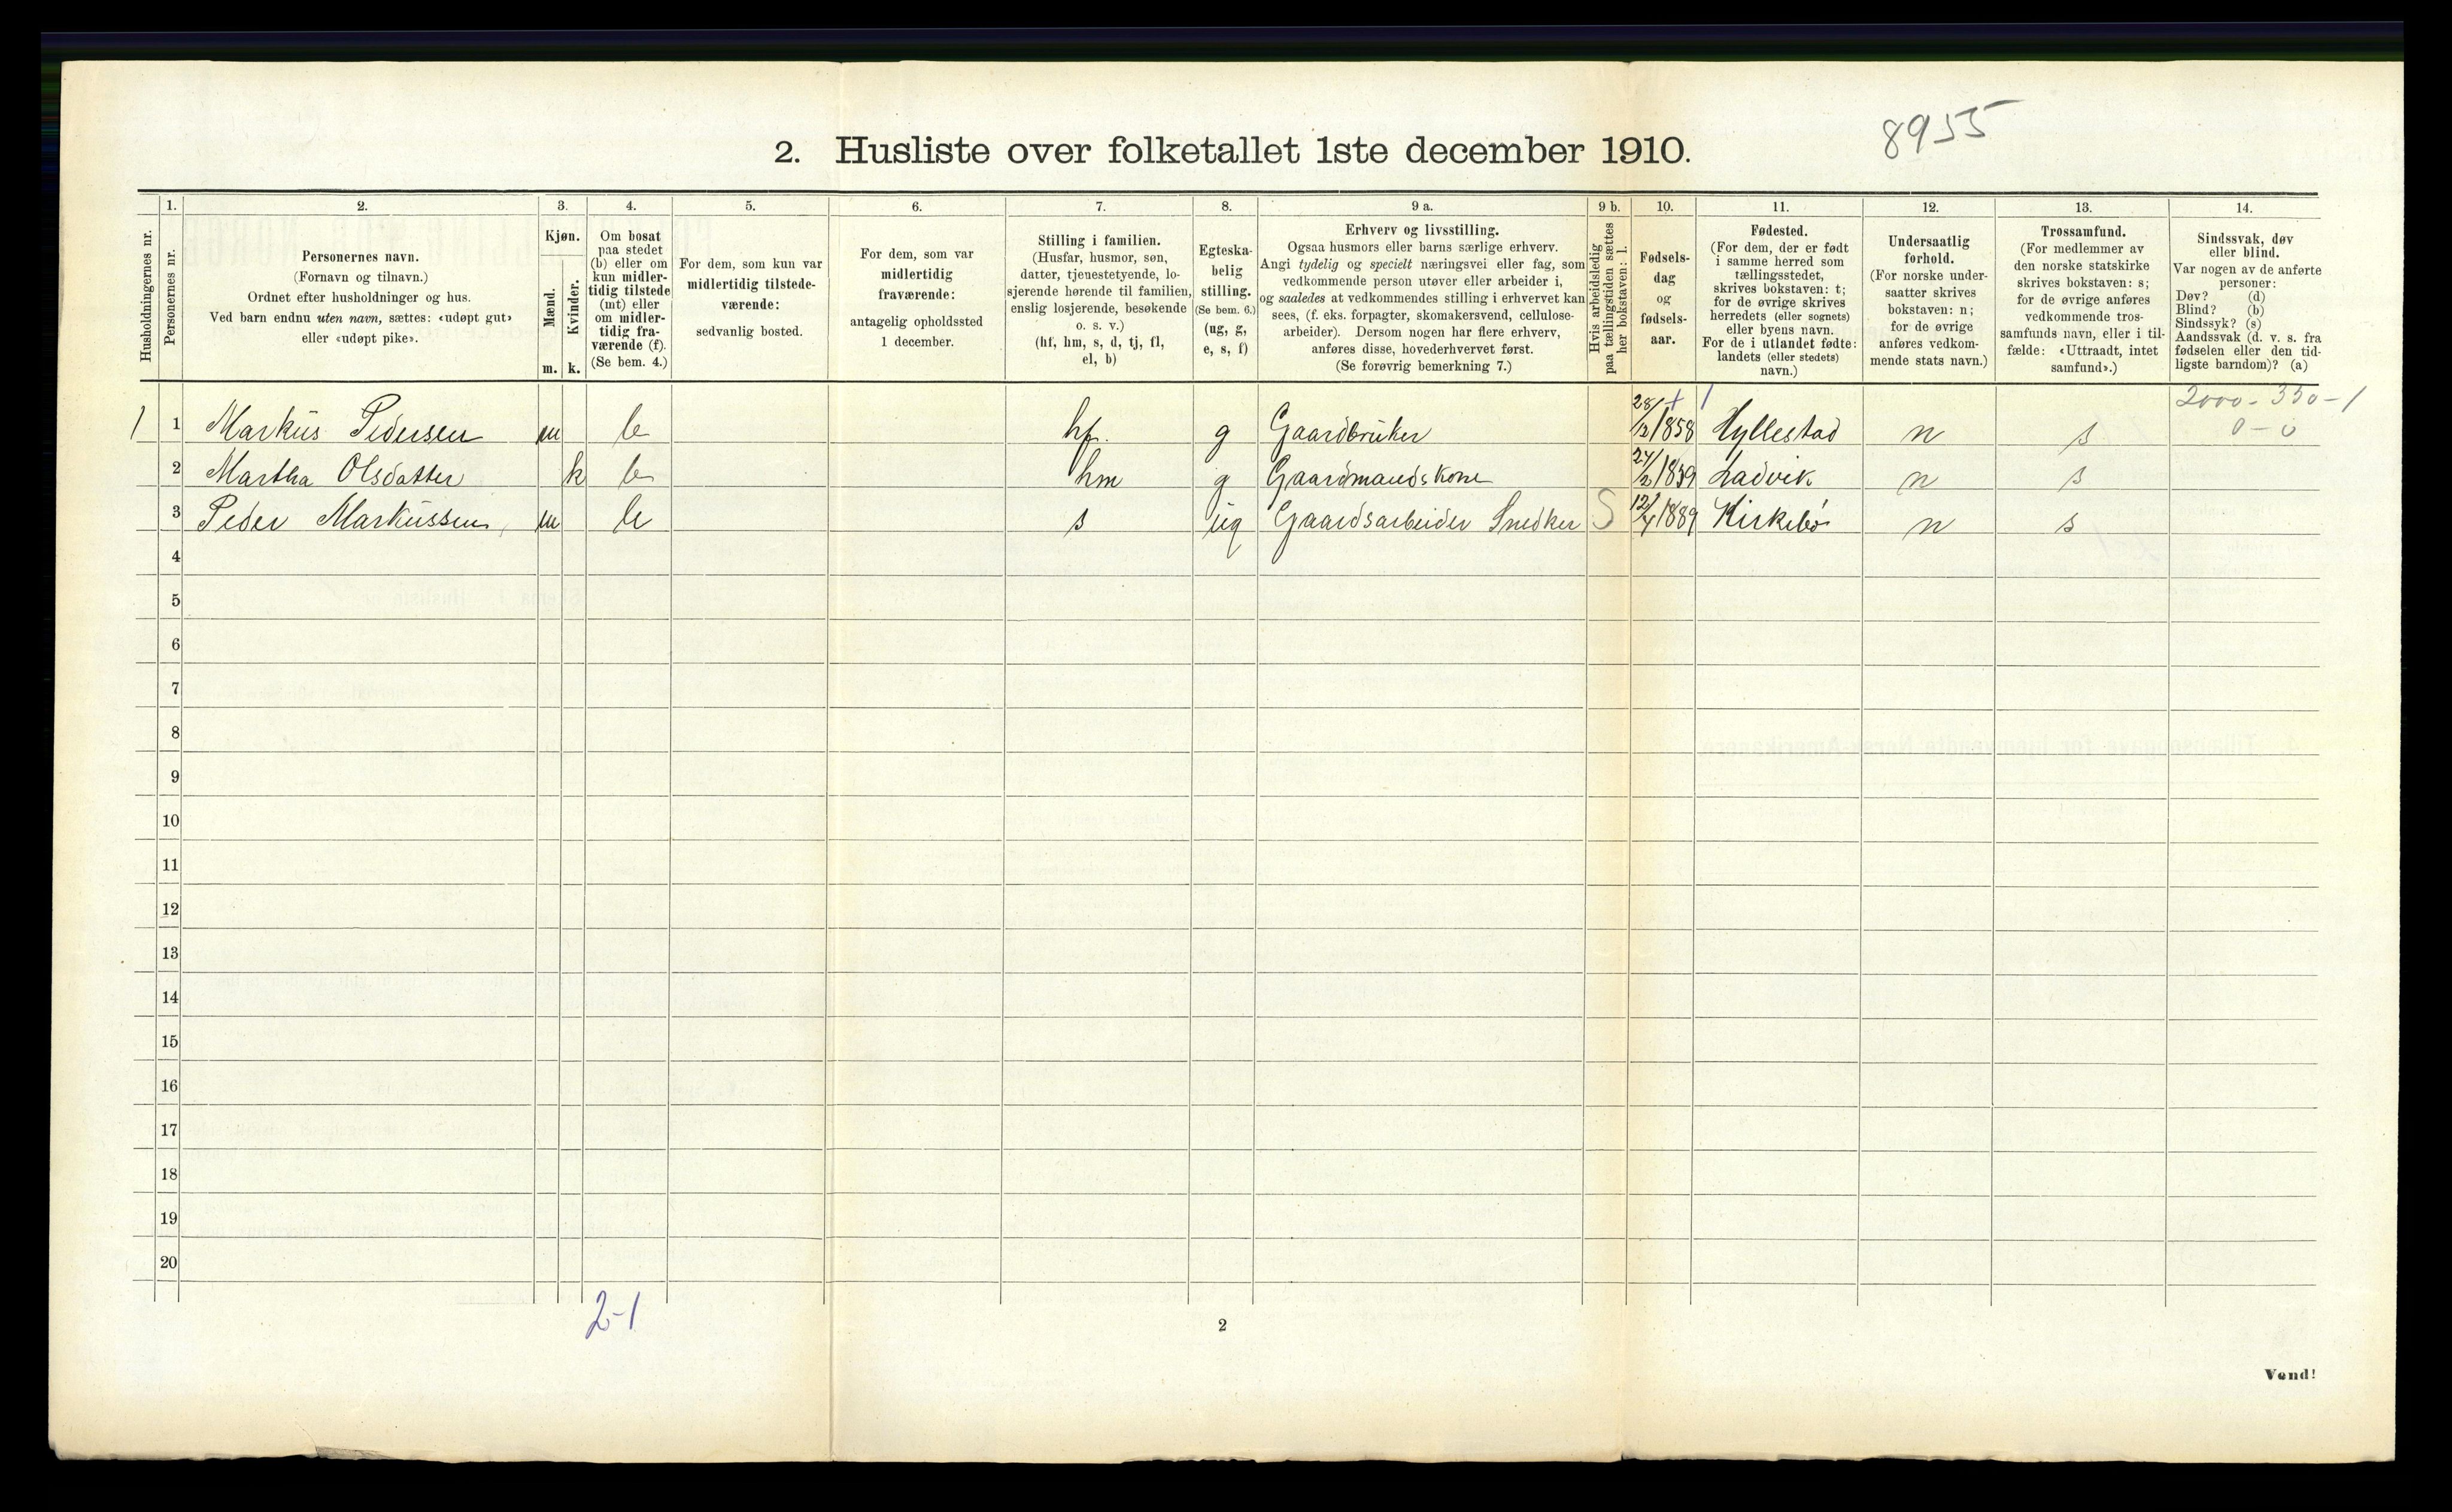 8955
2. Husliste over folketallet 1ste december 1910.
Husholdningernes nr.
1.
Personernes nr.
2.
Personernes navn.
(Fornavn og tilnavn.)
Ordnet efter husholdninger og hus.
Ved barn endnu uten navn, sættes: «udøpt gut»
eller «udøpt pike».
3.
Kjøn.
Mænd.
Kvinder.
m. k.
4.
Om bosat
paa stedet
(b) eller om
kun midler-
tidig tilstede
(mt) eller
om midler-
tidig fra-
værende (f).
(Se bem. 4.)
5.
For dem, som kun var
midlertidig tilstede-
værende:
sedvanlig bosted.
6.
For dem, som var
midlertidig
fraværende:
antagelig opholdssted
1 december.
7.
Stilling i familien.
(Husfar, husmor, søn,
datter, tjenestetyende, lo-
sjerende hørende til familien,
enslig losjerende, besøkende
o. s. v.)
(hf, hm, s, d, tj, fl,
el, b)
8.
Egteska-
belig
stilling.
(Se bem. 6.)
(ug, g,
e, s, f)
9 a.
Erhverv og livsstilling.
Ogsaa husmors eller barns særlige erhverv.
Angi tydelig og specielt næringsvei eller fag, som
vedkommende person utøver eller arbeider i,
og saaledes at vedkommendes stilling i erhvervet kan
sees, (f. eks. forpagter, skomakersvend, cellulose-
arbeider). Dersom nogen har flere erhverv,
anføres disse, hovederhvervet først.
(Se forøvrig bemerkning 7.)
9 b.
Hvis arbeidsledig
paa tællingstiden sættes
her bokstaven: l.
10.
Fødsels-
dag
og
fødsels-
aar.
11.
Fødested.
(For dem, der er født
i samme herred som
tællingsstedet,
skrives bokstaven: t;
for de øvrige skrives
herredets (eller sognets)
eller byens navn.
For de i utlandet fødte:
landets (eller stedets)
navn.)
12.
Undersaatlig
forhold.
(For norske under-
saatter skrives
bokstaven: n;
for de øvrige
anføres vedkom-
mende stats navn.)
13.
Trossamfund.
(For medlemmer av
den norske statskirke
skrives bokstaven: s;
for de øvrige anføres
vedkommende tros-
samfunds navn, eller i til-
fælde: «Uttraadt, intet
samfund».)
14.
Sindssvak, døv
eller blind.
Var nogen av de anførte
personer:
Døv? (d)
Blind? (b)
Sindssyk? (s)
Aandssvak (d. v. s. fra
fødselen eller den tid-
ligste barndom)? (a)
2000 - 350 - 1
0 - 0
1 1 Markus Pedersen m b hf. g Gaardbruker 28/12 1858 Hyllestad n s
2 Martha Olsdatter k b hm g Gaardmandskone 24/2 1839 Ladvik n s
3 Peder Markussen m b s ug Gaardsarbeider Snedker S 12/4 1889 Kirkebø n s
4
5
6
7
8
9
10
11
12
13
14
15
16
17
18
19
20
2-1
2
Vend!